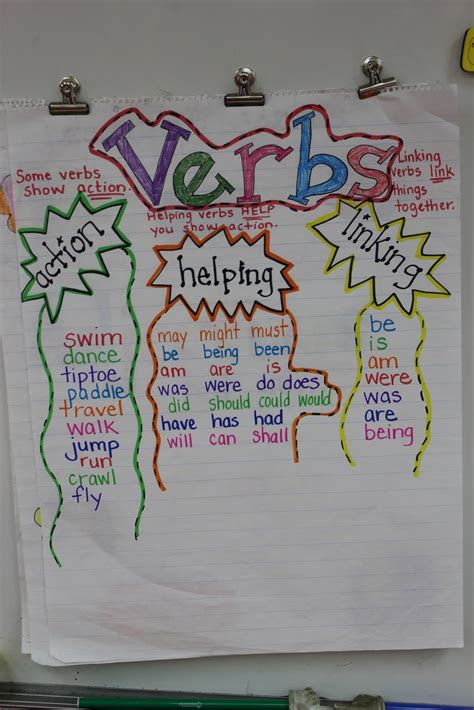 Verbs
Some verbs
show action.
Helping verbs HELP
you show action.
Linking
verbs link
things
together.
action
swim
dance
tiptoe
paddle
travel
walk
jump
run
crawl
fly
helping
may might must
be being been
am are is
was were do does
did should could would
have has had
will can shall
linking
be
is
am
were
was
are
being